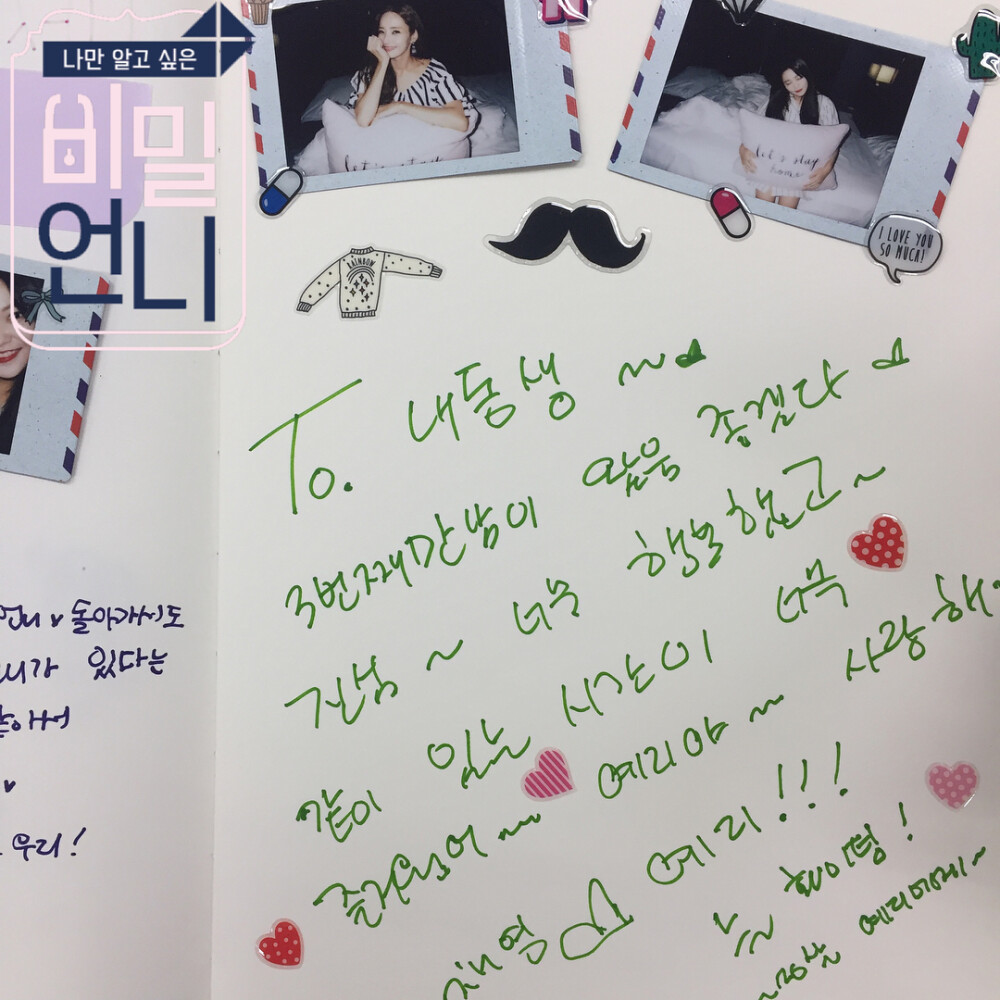 나만 알고 싶은
비밀
언니
let's stay
home
RAINBOW
I LOVE YOU
SO MUCH!
언니 돌아가서도
니가 있다는
같아서
우리!
To. 내동생 ~
3번째만남이 있음 좋겠다
진심~ 너무 행복했고~
같이 있는 시간이 너무
즐거웠어~ 예리야~ 사랑해
예리!!!
늘 화이팅!
예리에게~